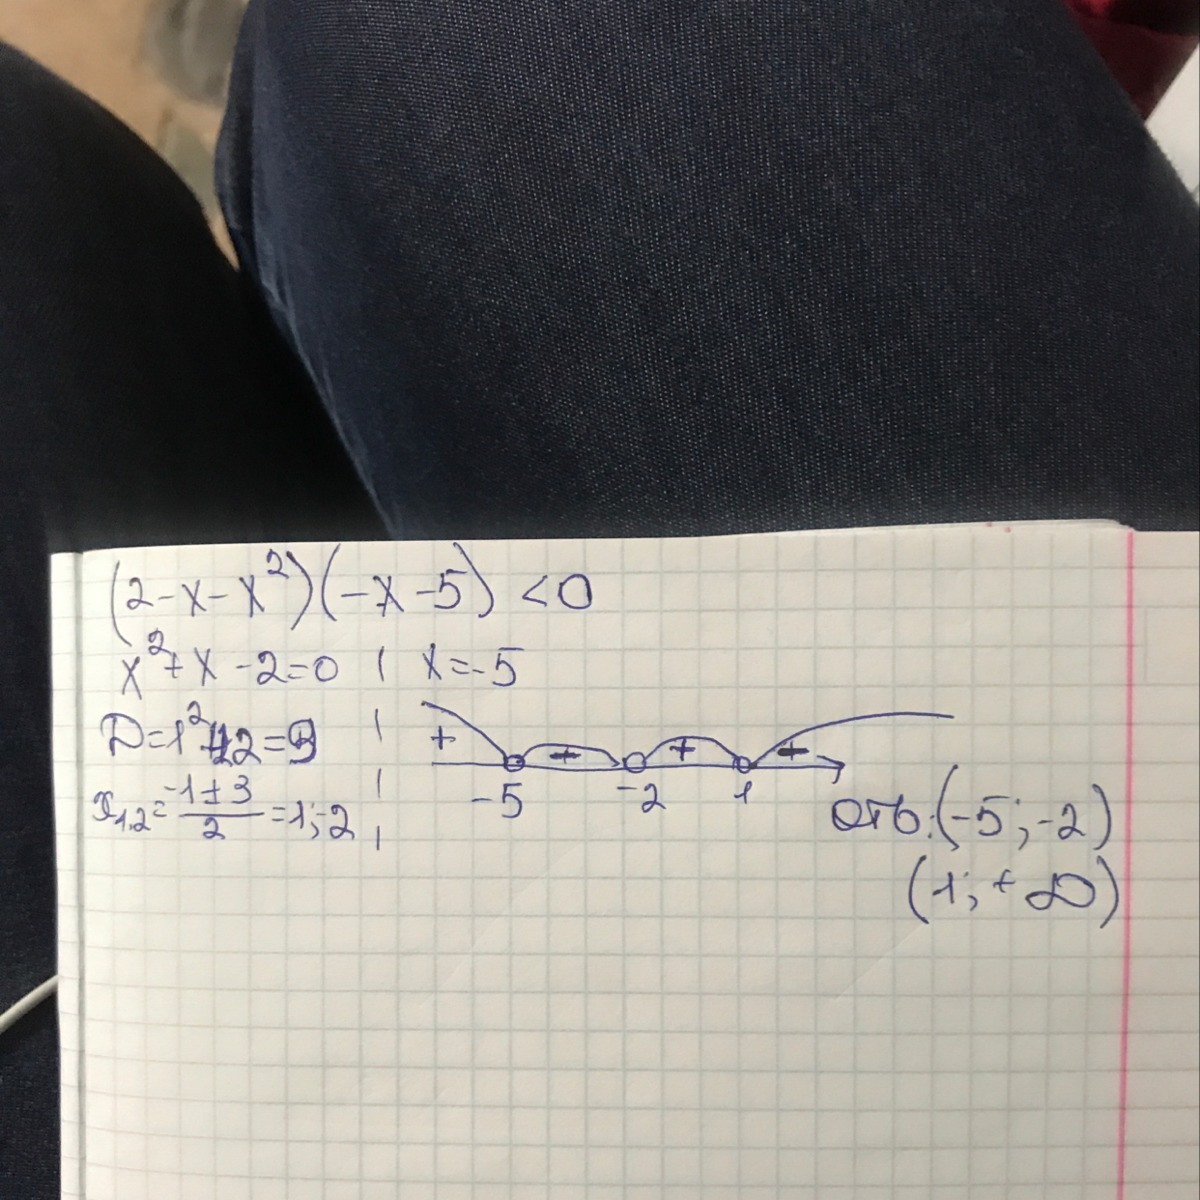 (2-x-x²)(-x-5) <0
x²+x-2=0 | x=-5
x₁,₂=(-1±3)/2=1;-2
+ + + -
-5 -2 1
Отв.:(-5;-2)
(1;+∞)